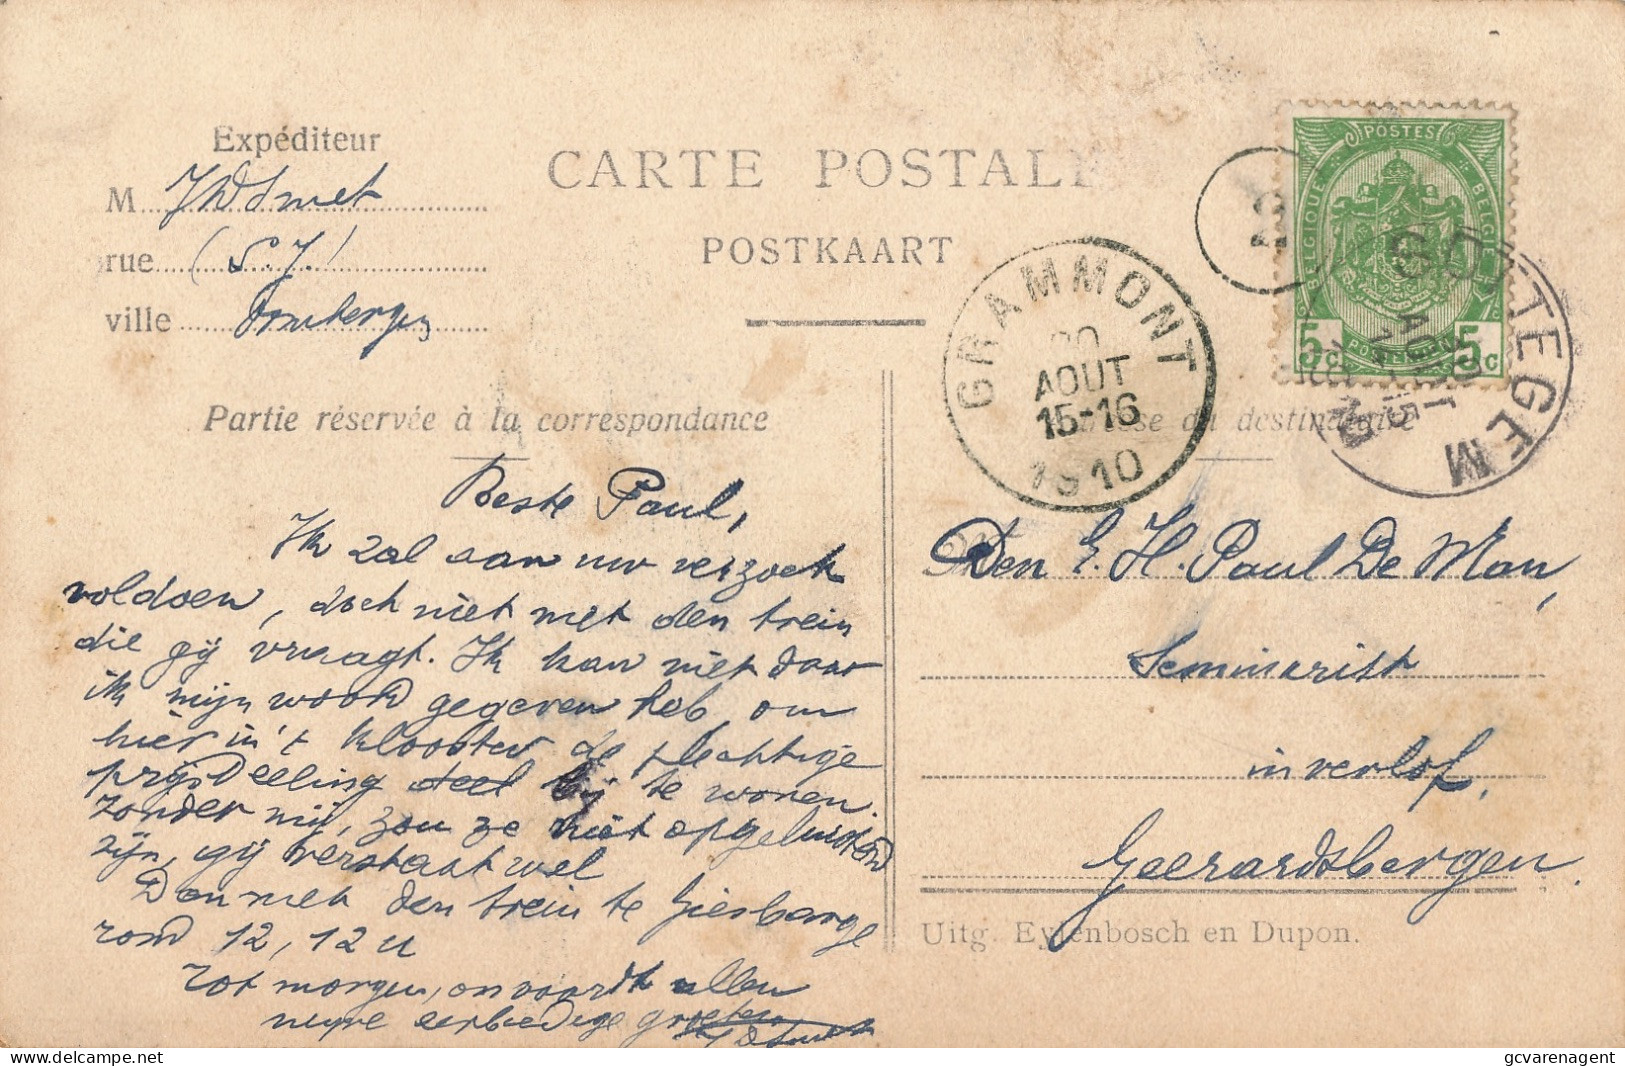 Expéditeur
M JhDSmet
rue (S.J.)
ville
CARTE POSTALE
POSTKAART
2
POSTES
BELGIQUE
BELGIE
5c 5c
SOTTEGEM
AOUT
GRAMMONT
20
AOUT
15-16
1910
Partie réservée à la correspondance
du destinataire
Beste Paul,
Ik zal aan uw verzoek
voldoen, doch niet met den trein
die gij vraagt. Ik kan niet daar
ik mijn woord gegeven heb om
hier in 't klooster de plechtige
prijsdeeling deel bij te wonen.
zonder mij, zou ze niet opgeluisterd
zijn, gij verstaat wel
Dan met den trein te
rond 12, 12 u
Tot morgen, onvaardt allen
mijne eerbiedige groeten
JhDSmet
Den E. H. Paul De Man,
Seminarist
in verlof,
Geerardsbergen.
Uitg. Eylenbosch en Dupon.
gcvarenagent